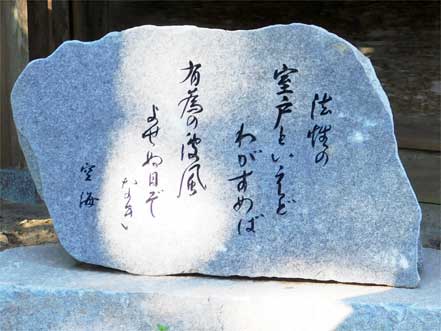 法性の
室戸といへど
わがすめば
有為の波風
よせぬ日ぞ
なき
空海